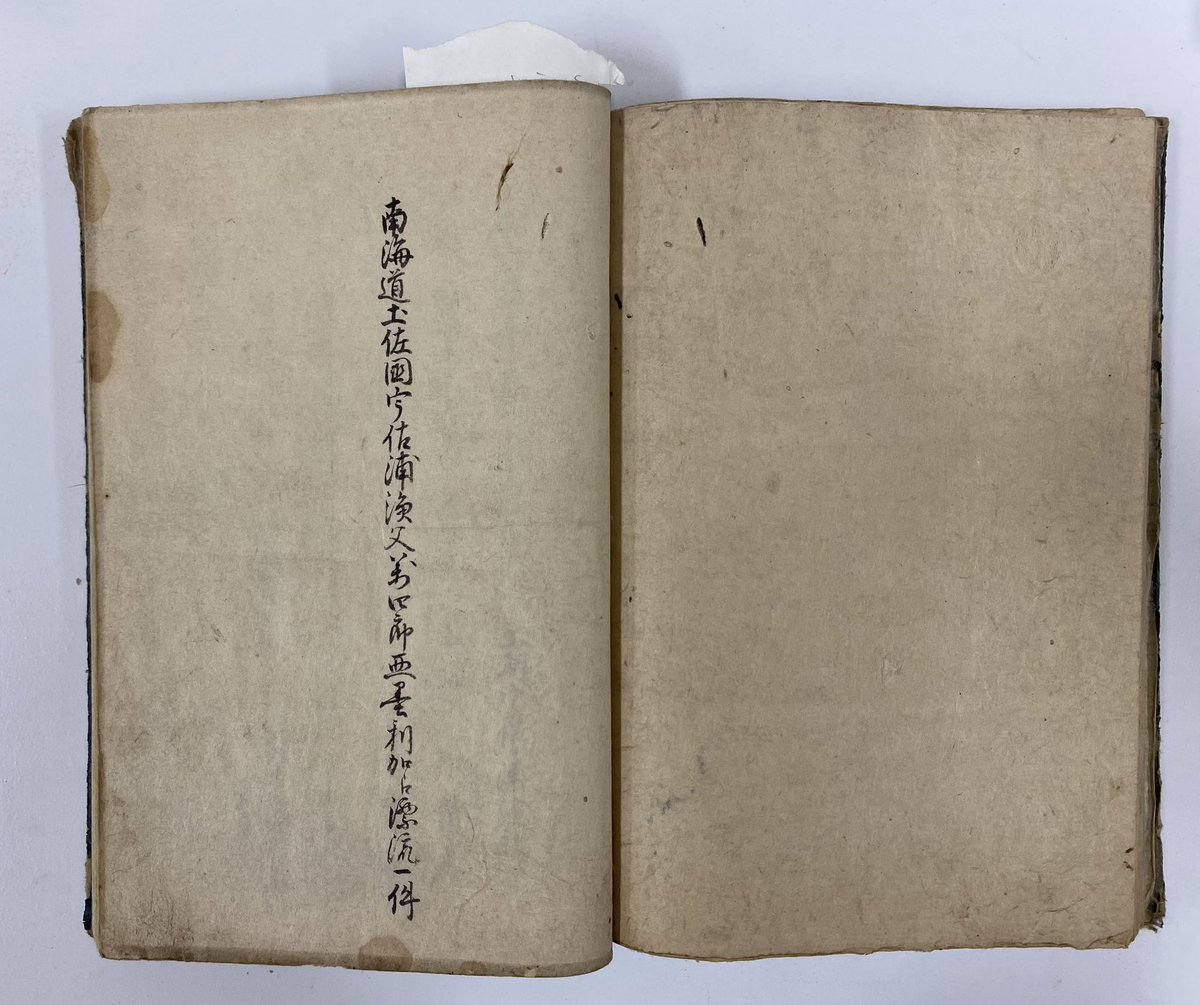 南海道土佐國宇佐浦漁父萬四郎亜墨利加ニ漂流一件